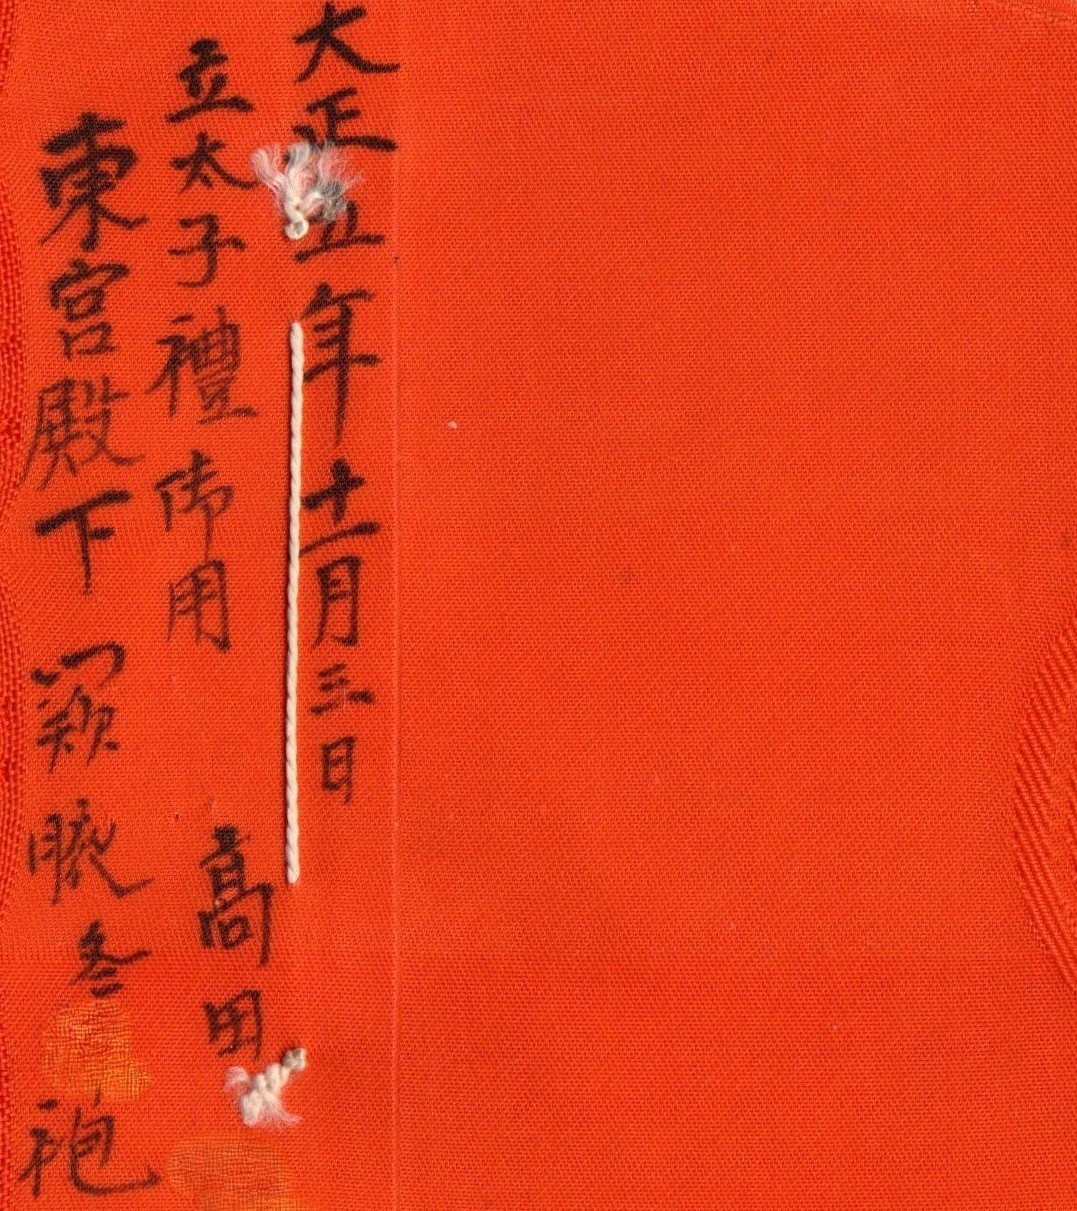 大正五年十一月三日
立太子禮御用 高田
東宮殿下 闕腋冬袍